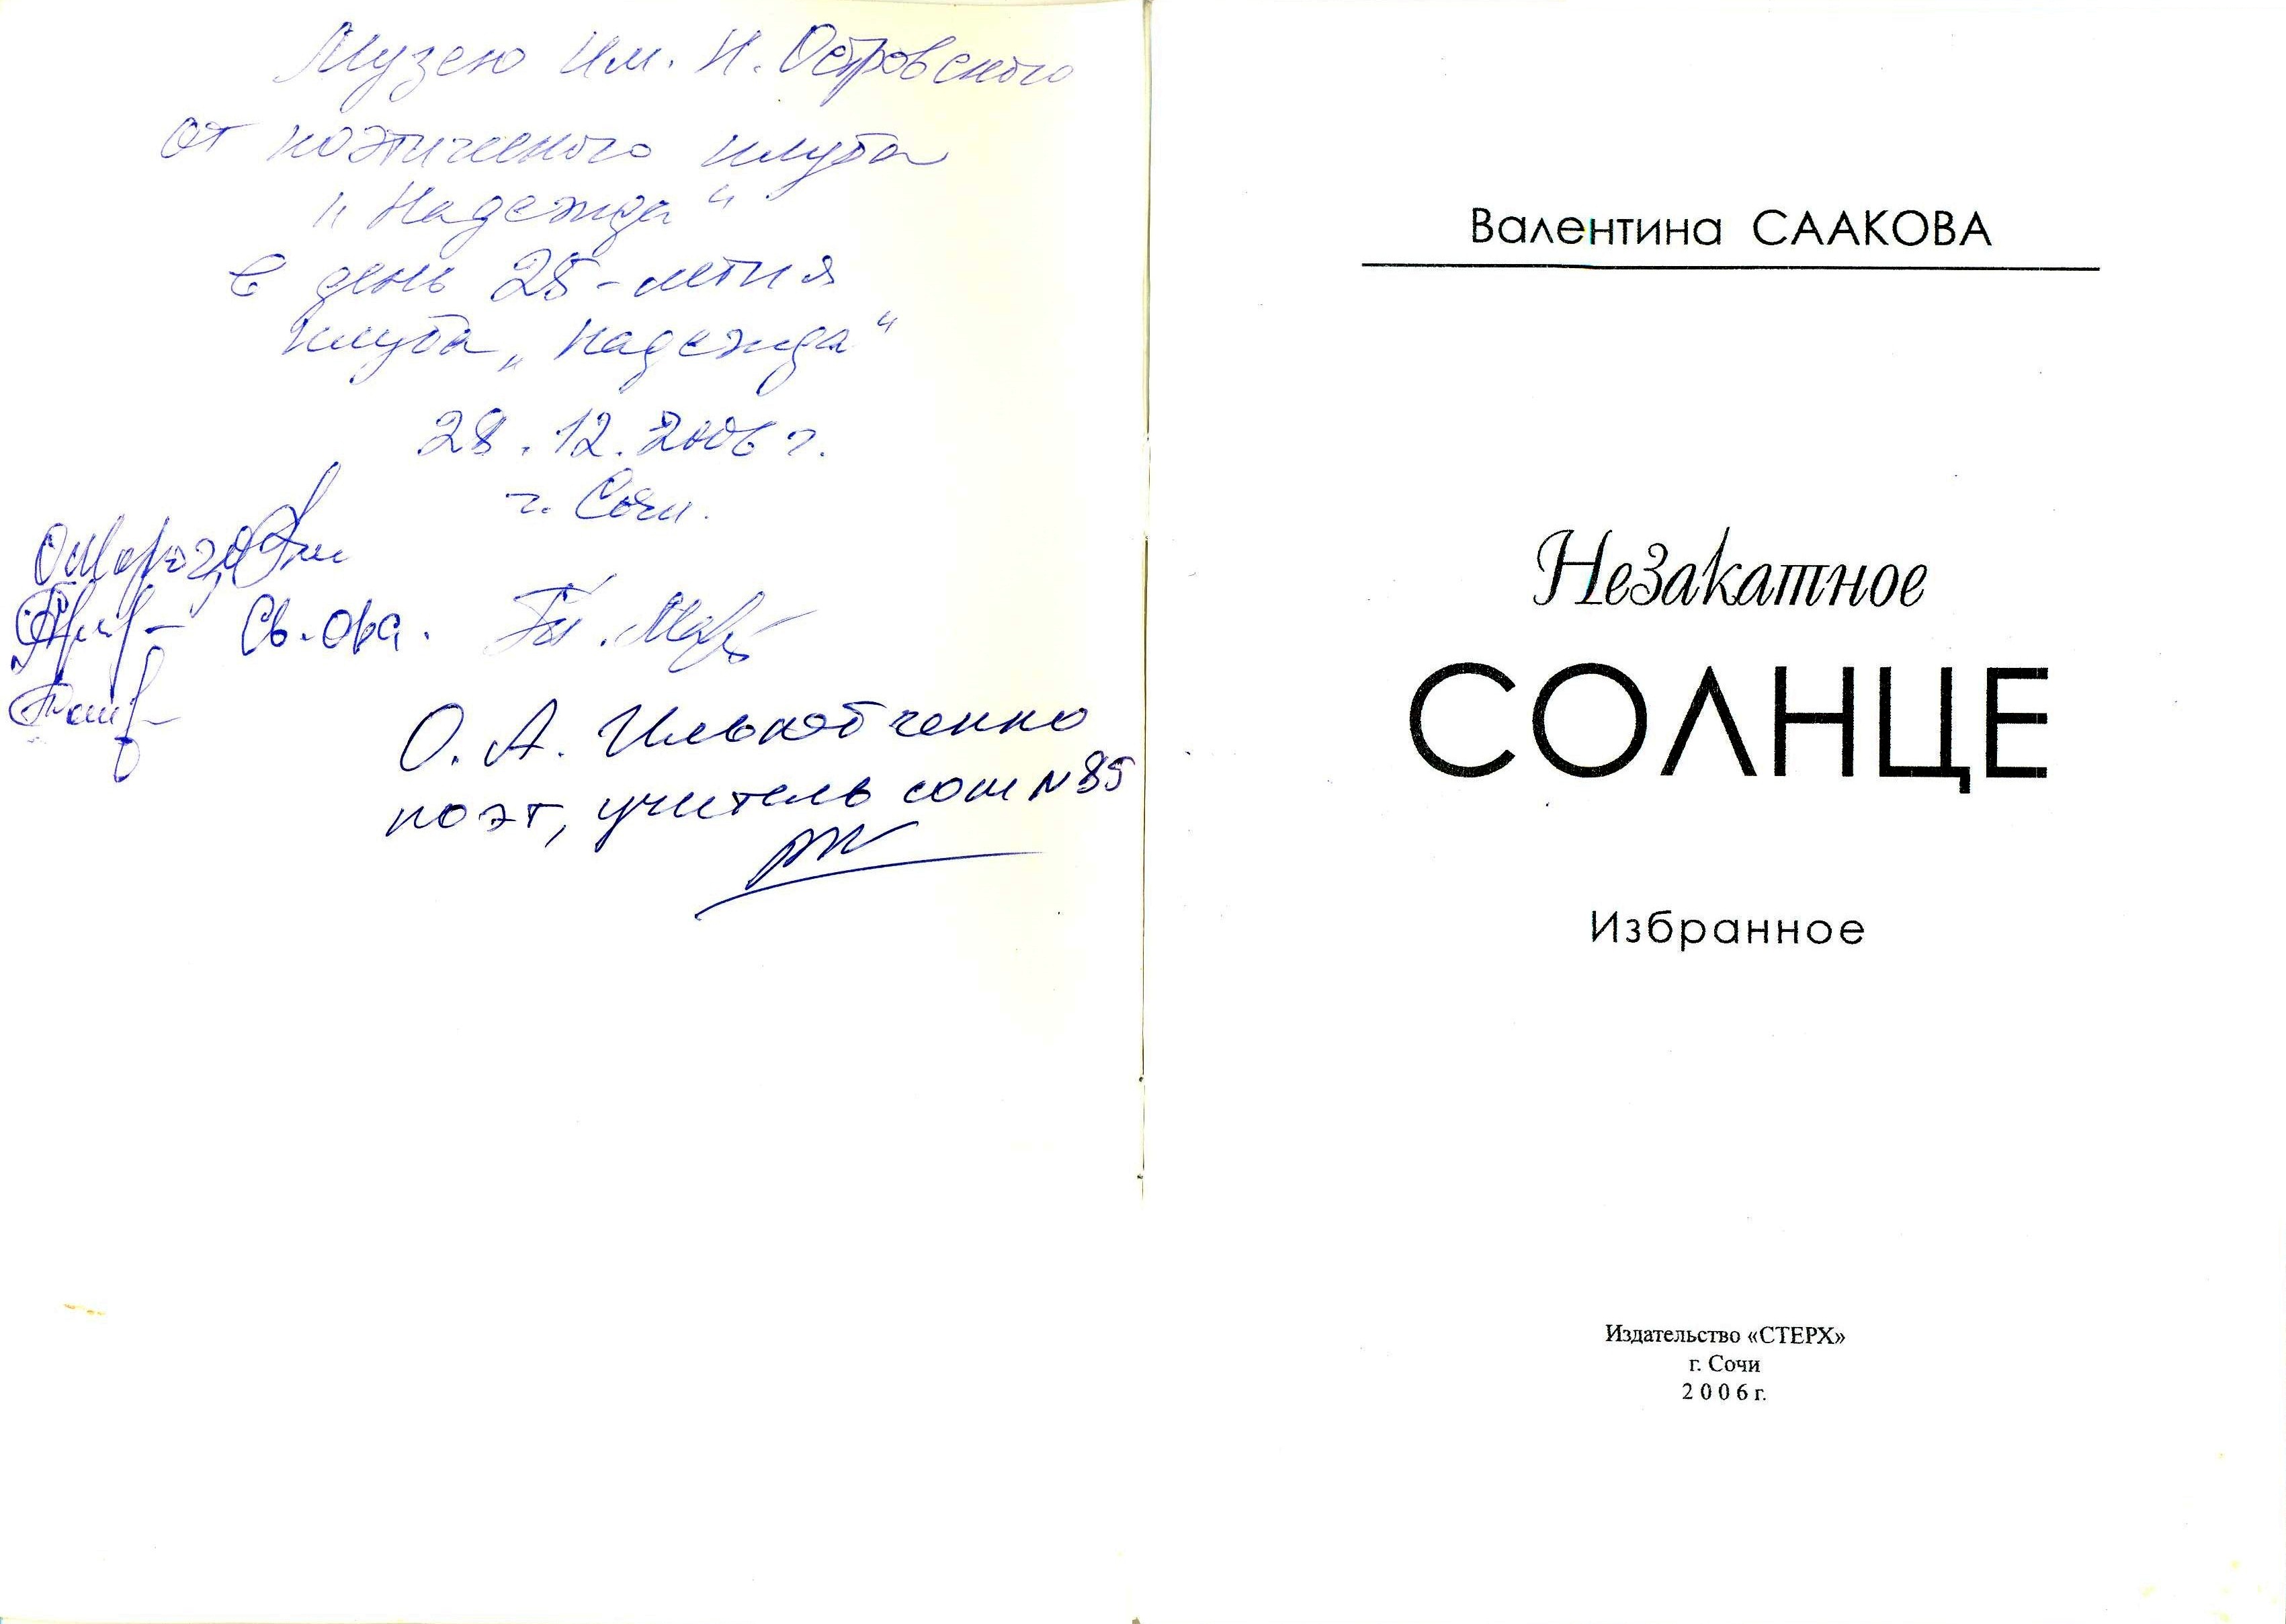 Музею им. Н. Островского
от поэтического клуба
„Надежда“
в день 25-летия
клуба „Надежда“
28.12.2006 г.
г. Сочи.
О. А.
поэт, учитель сош N 85
Валентина СААКОВА
Незакатное
СОЛНЦЕ
Избранное
Издательство «СТЕРХ»
г. Сочи
2006г.